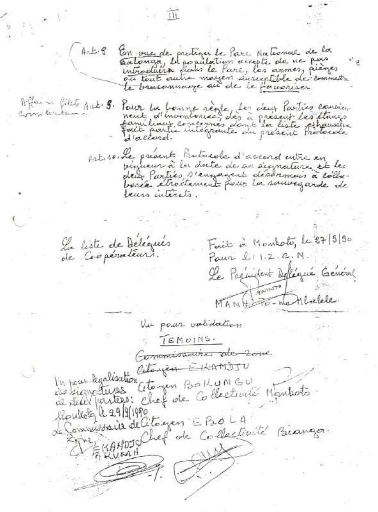 III
Art. 8. En vue de protéger le Parc National de la
Salonga, la population accepte de ne pas
introduire dans le Parc, les armes, pièges
ou tout autre moyen susceptible de commettre
le braconnage ou de le favoriser.
Art. 9. Pour la bonne règle, les deux Parties convien-
nent d'inventorier, dès à présent les
concernées dont la liste
fait partie intégrante du présent Protocole
d'accord.
Art. 10. Le présent Protocole d'accord entre en
vigueur à la date de sa signature et les
deux Parties s'engagent désormais à colla-
borer étroitement pour la sauvegarde de
leurs intérêts.
La liste de Délégués
de Coopérateurs.
Fait à Monkoto, le 27/9/90
Pour l'I.Z.C.N.
Le Président Délégué Général
Vu pour validation
TEMOINS.
Commissaire de zone
Citoyen EKANDJU
Vu pour légalisation
des signatures
de deux parties:
Monkoto, le 29/9/1990
Le Commissaire de
Zone
EKANDJU
Citoyen BOKUNGU
Chef de Collectivité Monkoto
Citoyen EPOLA
Chef de Collectivité Bianga.